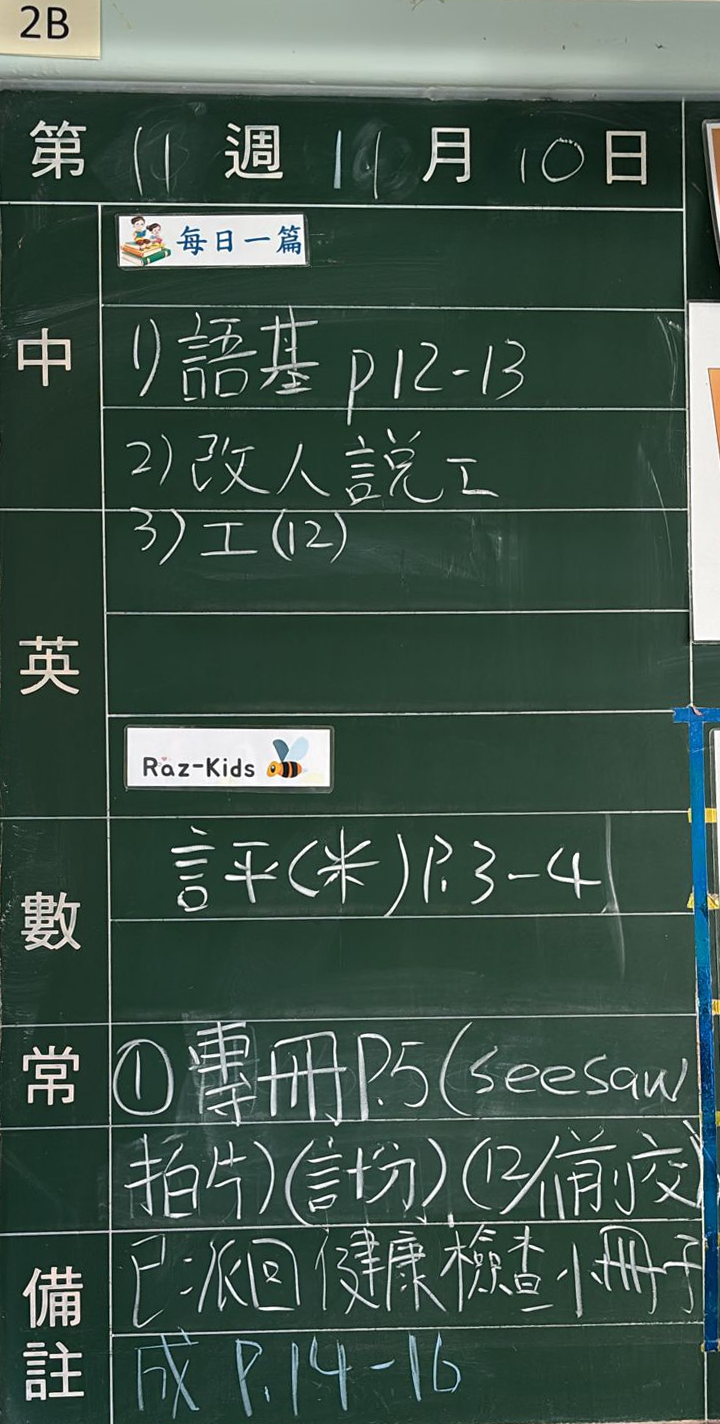 2B
第 11 週 11 月 10 日
每日一篇
中
1) 語基 p12-13
2) 改人說工
3) 工(12)
英
Raz-Kids
數
評(米)P.3-4
常
① 專冊P.5(seesaw
拍片)(計分)(12/11前交)
備註
已派回健康檢查小冊子
成 P.14-16